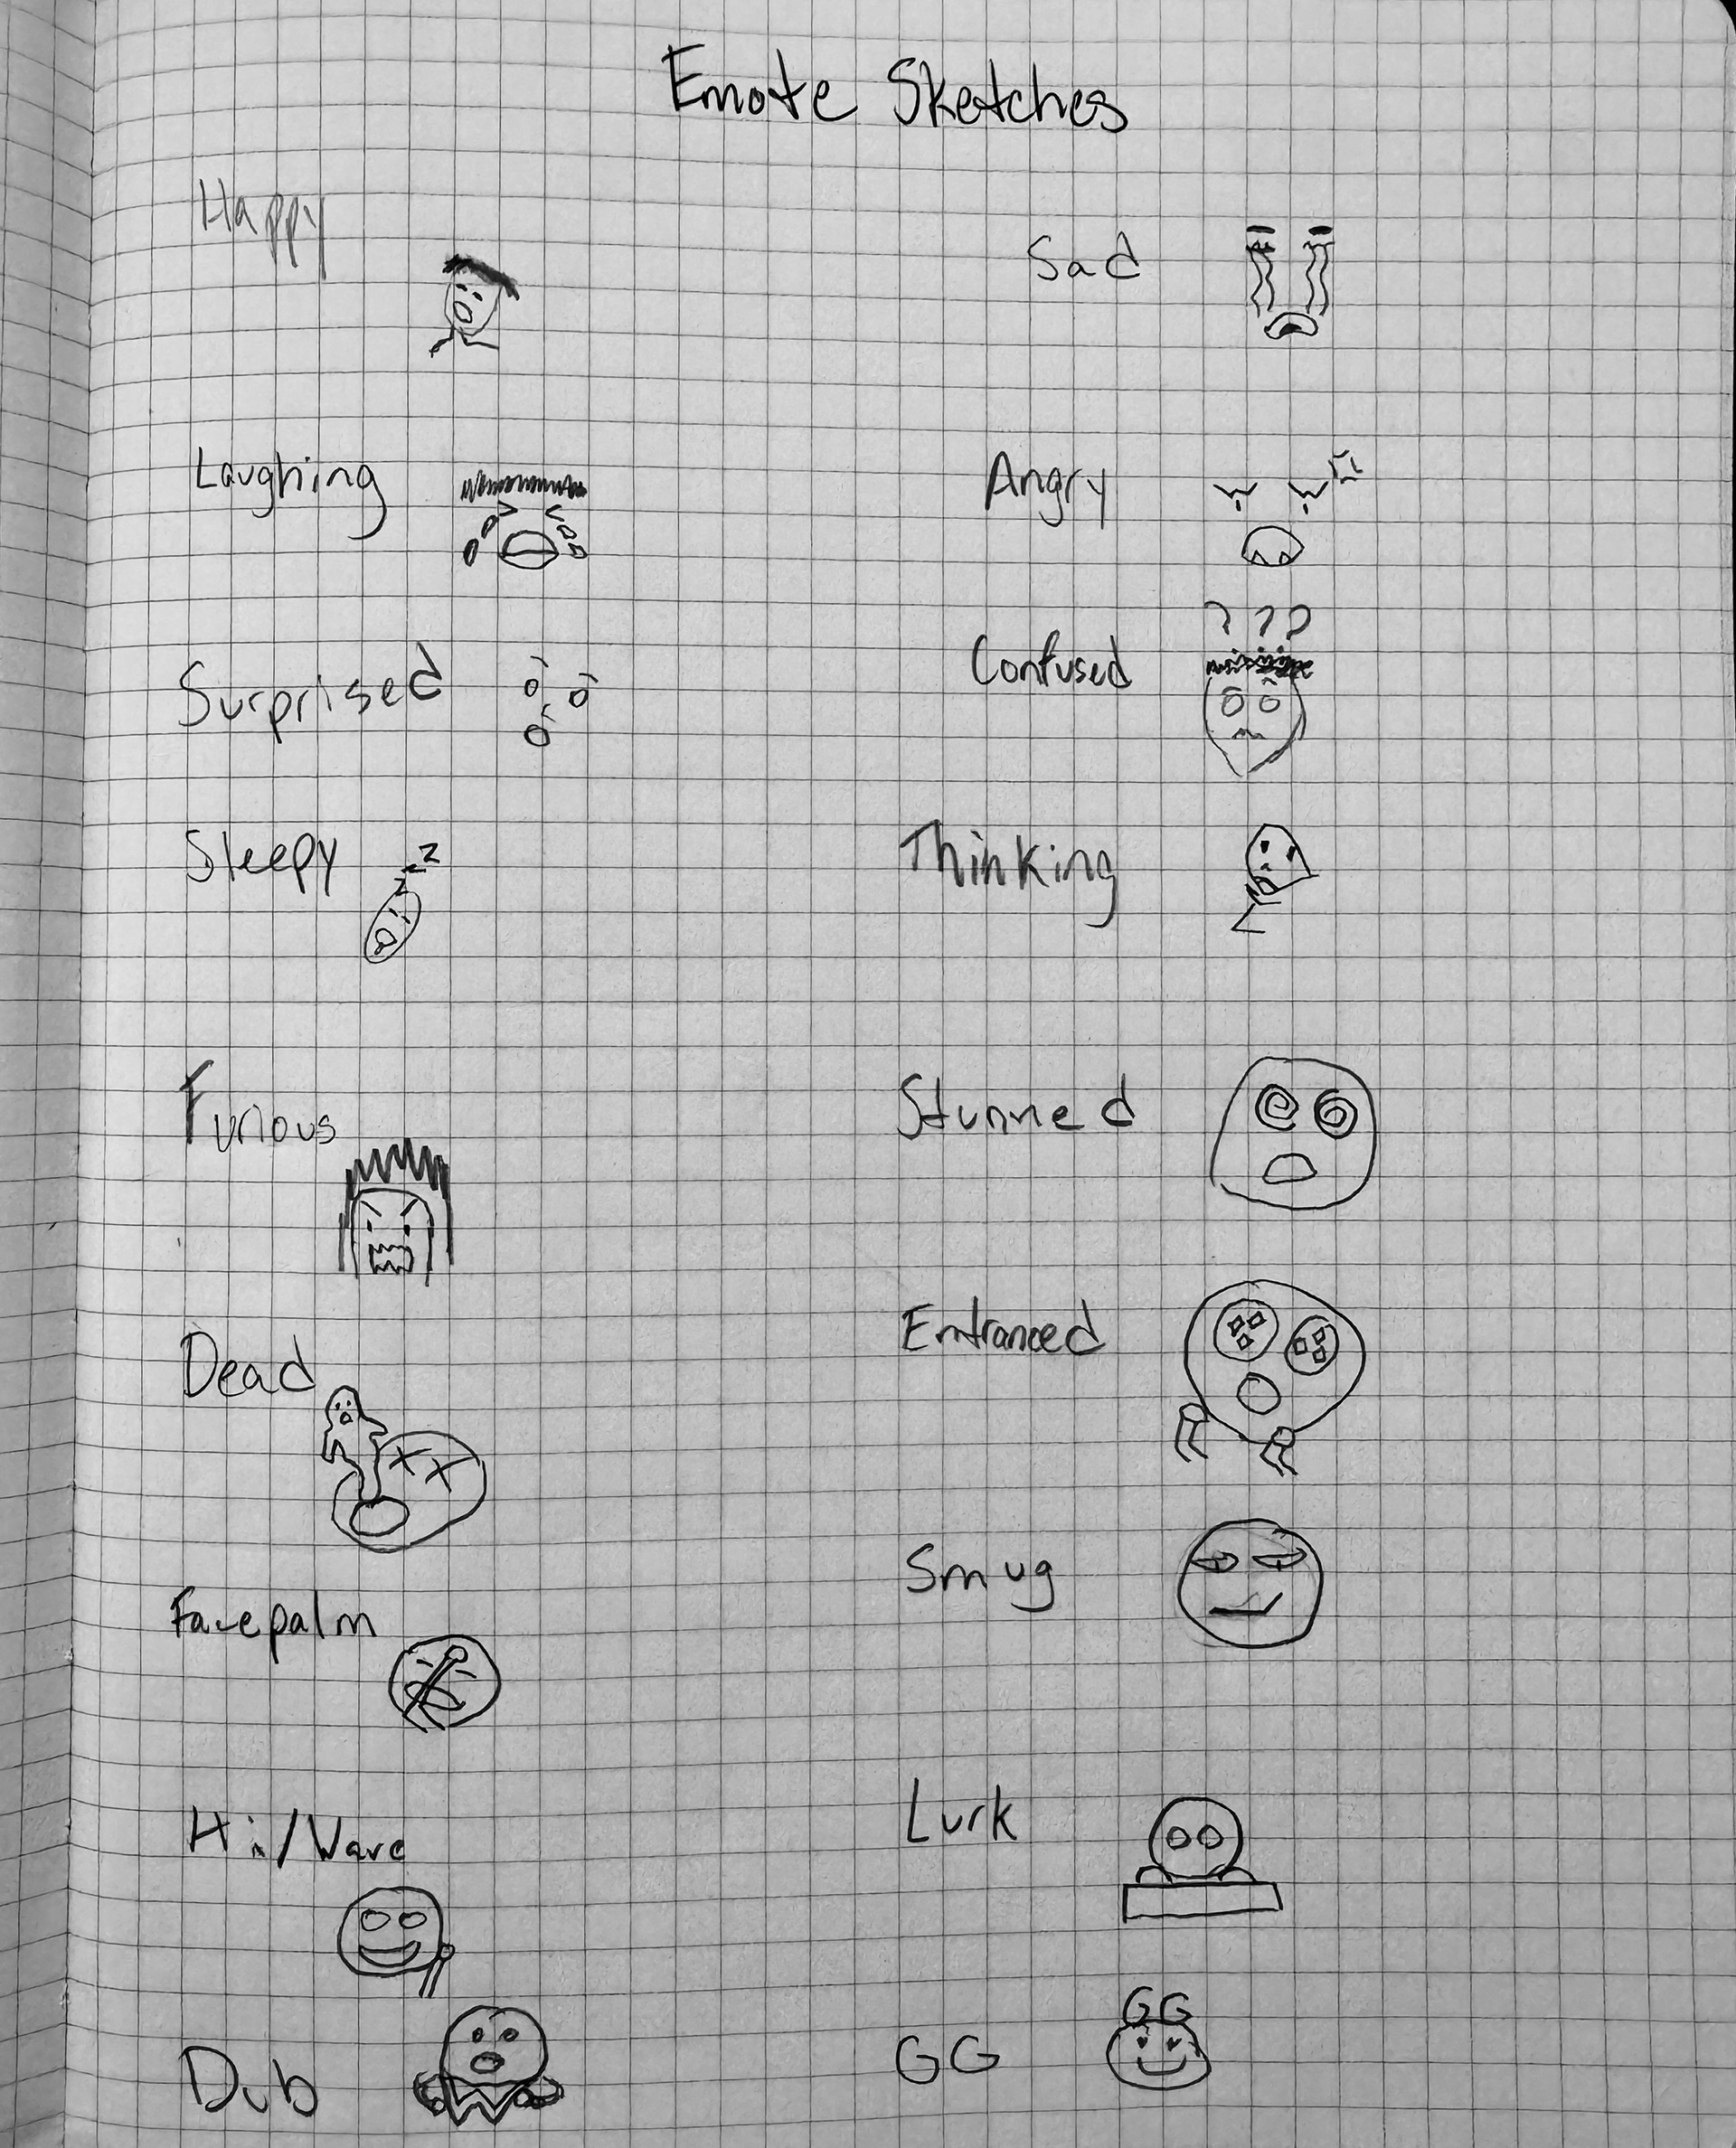 Emote Sketches
Happy
Sad
Laughing
Angry
? ? ?
Surprised
Confused
z z z
Sleepy
Thinking
Furious
Stunned
Entranced
Dead
Smug
Facepalm
Lurk
Hi/Wave
GG
GG
Dub